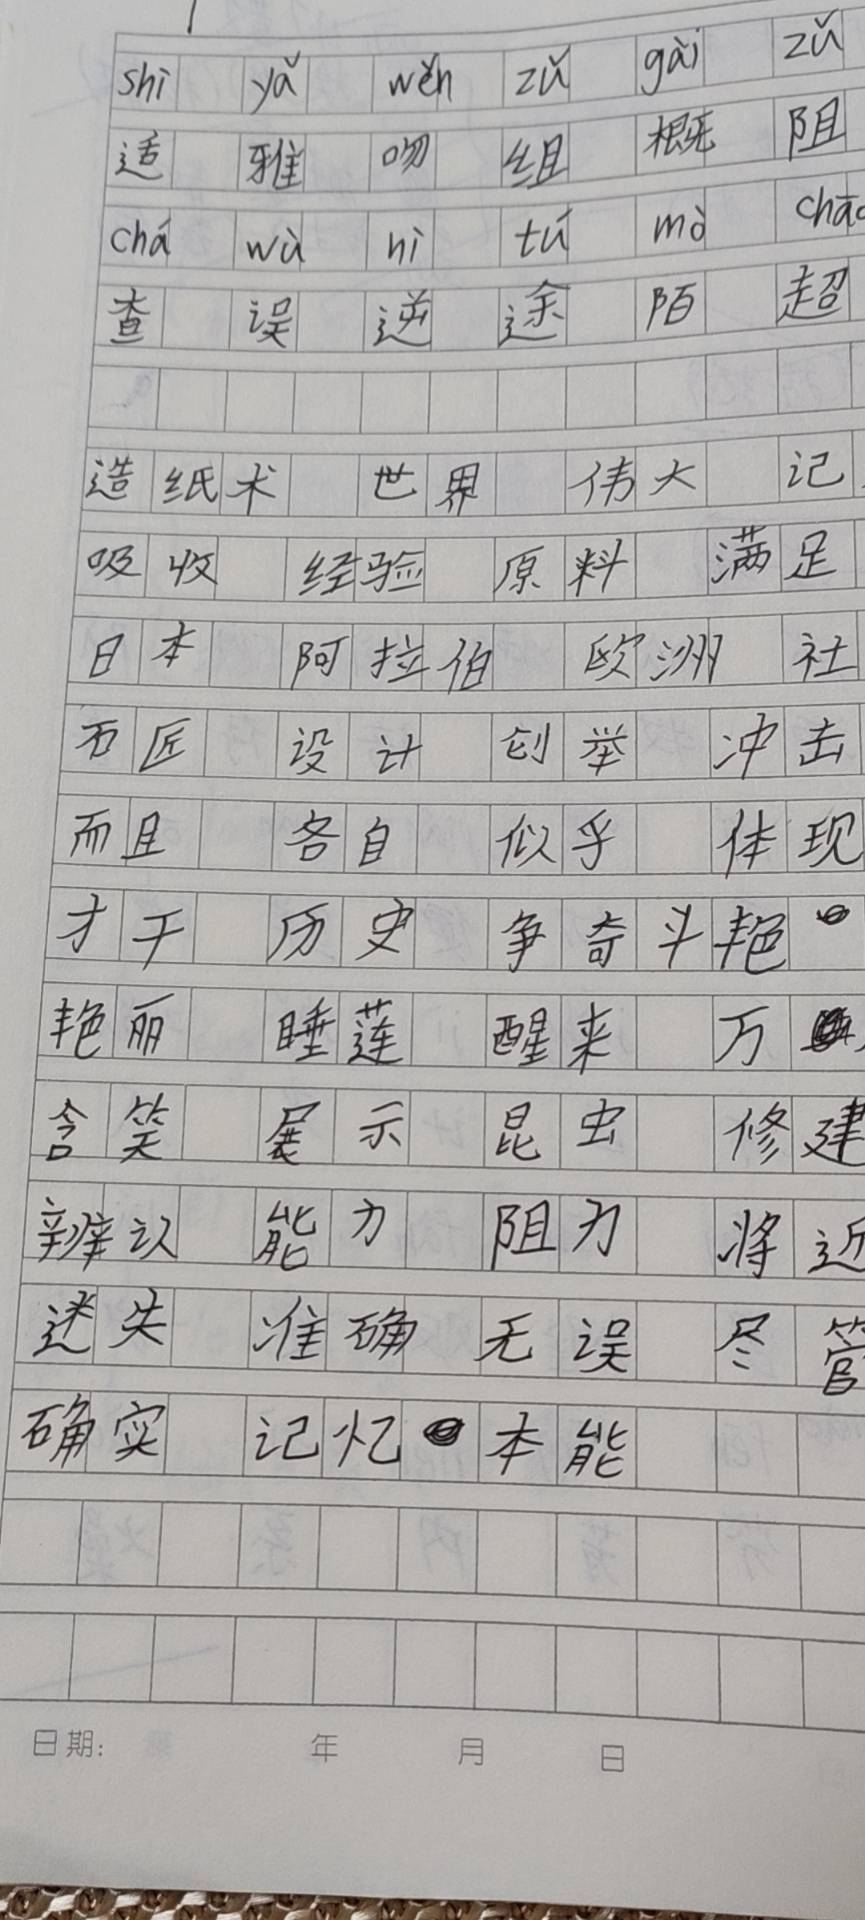 shì yǎ wěn zǔ gài zǔ
适 雅 吻 组 概 阻
chá wù nì tú mò
查 误 逆 途 陌 超
造纸术 世界 伟大 记
吸收 经验 原料 满足
日本 阿拉伯 欧洲 社
石匠 设计 创举 冲击
而且 各自 似乎 体现
才干 历史 争奇斗艳
艳丽 睡莲 醒来 万
含笑 展示 昆虫 修建
辨认 能力 阻力 将近
失 准确无误 尽管
确实 记忆 本能
日期： 年 月 日